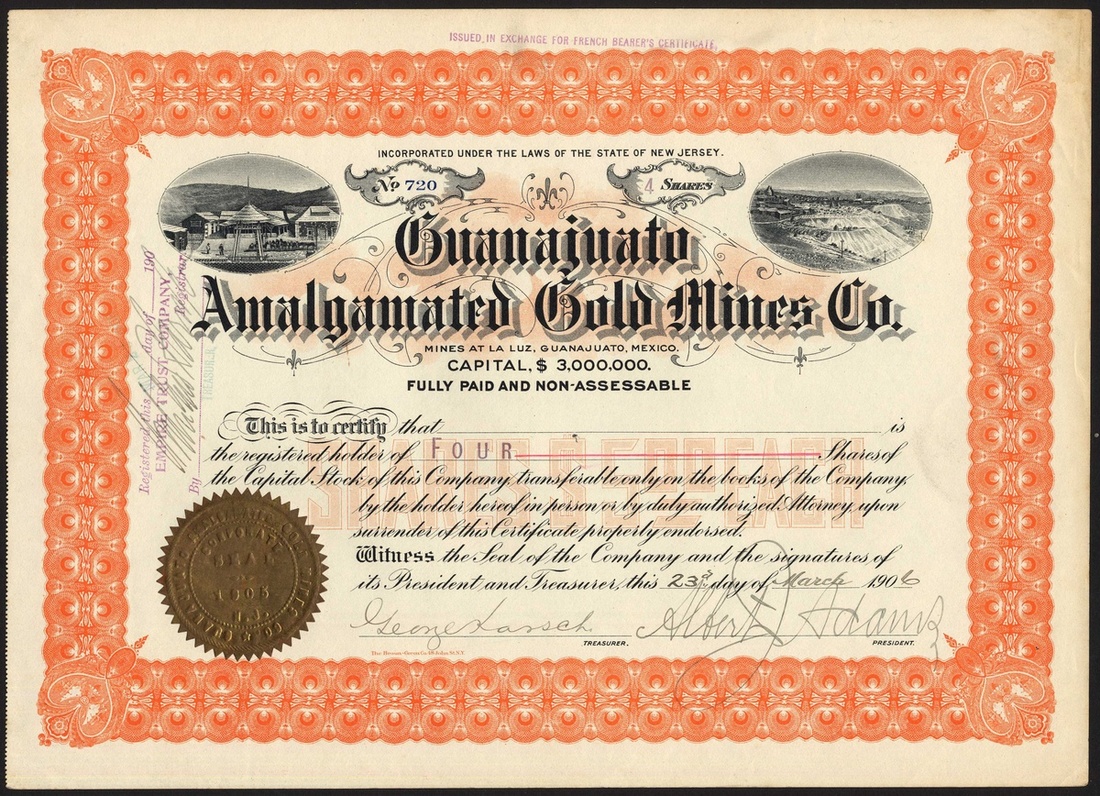 ISSUED IN EXCHANGE FOR FRENCH BEARER'S CERTIFICATE,
INCORPORATED UNDER THE LAWS OF THE STATE OF NEW JERSEY.
No 720
4 SHARES
Guanajuato
Amalgamated Gold Mines Co.
MINES AT LA LUZ, GUANAJUATO, MEXICO.
CAPITAL, $ 3,000,000.
FULLY PAID AND NON-ASSESSABLE
This is to certify that is
the registered holder of FOUR Shares of
the Capital Stock of this Company, transferable only on the books of the Company,
by the holder hereof in person or by duly authorized Attorney, upon
surrender of this Certificate properly endorsed.
Witness the Seal of the Company and the signatures of
its President and Treasurer, this 23rd day of March 1906
George Albert J Adams
TREASURER. PRESIDENT.
SHARES $5.00 EACH
Registered this day of 190
EMPIRE TRUST COMPANY,
Registrar
By
TREASURER
SEAL
1905
N.J.